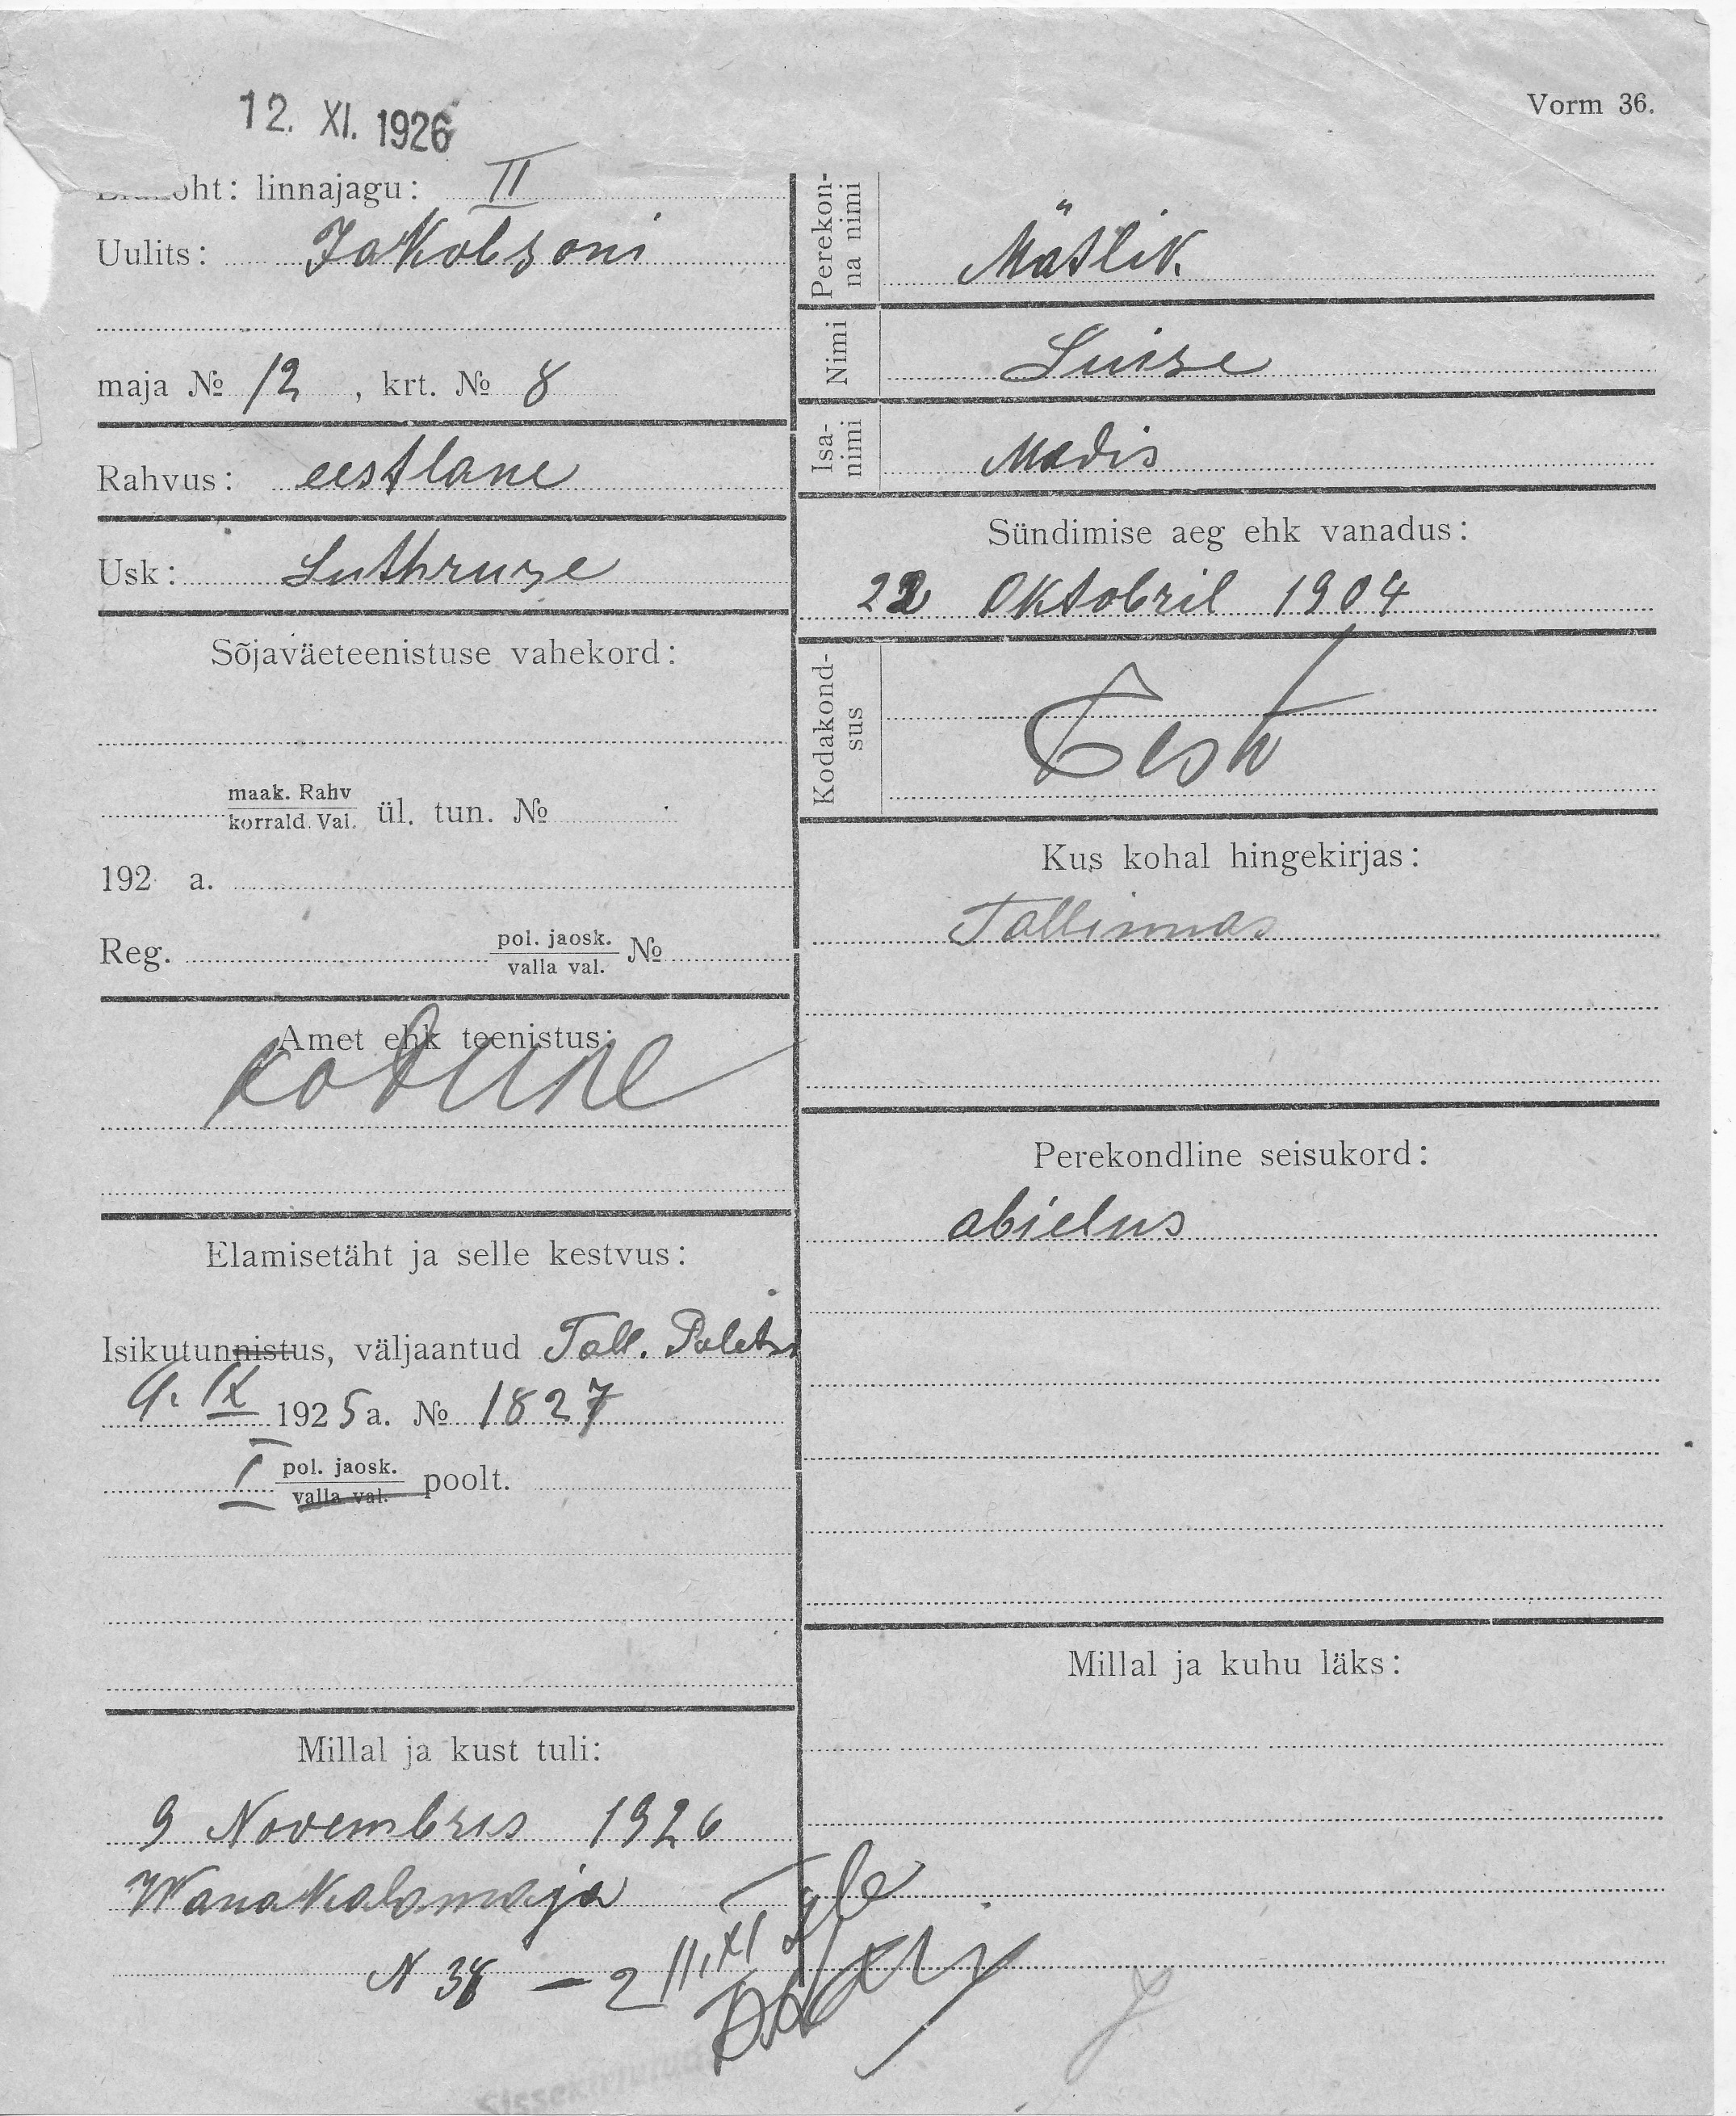 12. XI. 1926
Vorm 36.
oht: linnajagu: II
Uulits: Jakobsoni
maja № 12, krt. № 8
Rahvus: eestlane
Usk: Lutheruse
Sõjaväeteenistuse vahekord:
maak. Rahv
korrald. Val. ül. tun. №
192 a.
Reg. pol. jaosk.
valla val. №
Amet ehk teenistus:
kodune
Elamisetäht ja selle kestvus:
Isikutunnistus, väljaantud Tall.
IX 1925 a. № 1827
I pol. jaosk.
valla val. poolt.
Millal ja kust tuli:
9 Novembris 1926
Wana Kalamaja
N 38 – 2
11. XI
Perekon-
na nimi Mätlik
Nimi Luise
Isa-
nimi Madis
Sündimise aeg ehk vanadus:
22 Oktobril 1904
Kodakond-
sus Eesti
Kus kohal hingekirjas:
Tallinnas
Perekondline seisukord:
abielus
Millal ja kuhu läks: